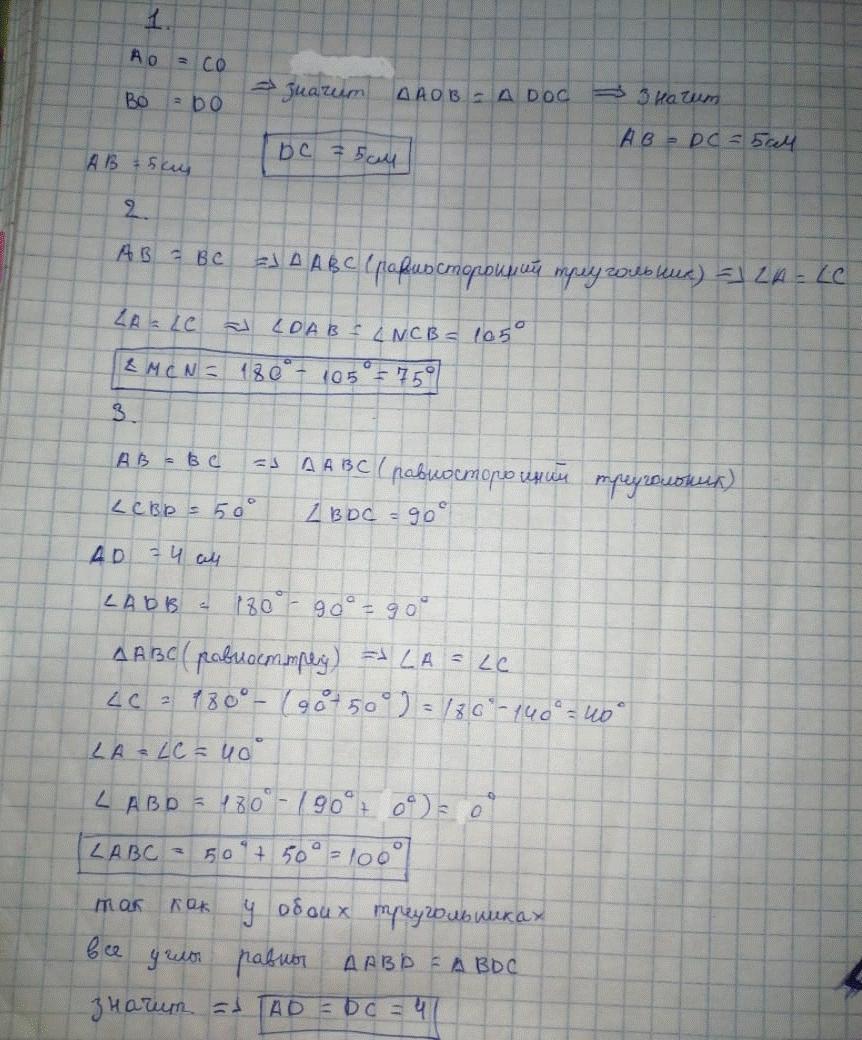 1.
AO = CO
BO = DO
⇒ значит ΔAOB = ΔDOC ⇒ значит
AB = DC = 5см
AB = 5см
DC = 5см
2.
AB = BC ⇒ ΔABC (равносторонний треугольник) ⇒ ∠A = ∠C
∠A = ∠C ⇒ ∠DAB = ∠NCB = 105°
∠MCN = 180° - 105° = 75°
3.
AB = BC ⇒ ΔABC (равносторонний треугольник)
∠CBD = 50° ∠BDC = 90°
AD = 4 см
∠ADB = 180° - 90° = 90°
ΔABC (равносттреу) ⇒ ∠A = ∠C
∠C = 180° - (90° + 50°) = 180° - 140° = 40°
∠A = ∠C = 40°
∠ABD = 180° - (90° + 0°) = 0°
∠ABC = 50° + 50° = 100°
так как у обоих треугольниках
все углы равны ΔABD = ΔBDC
значит ⇒ AD = DC = 4